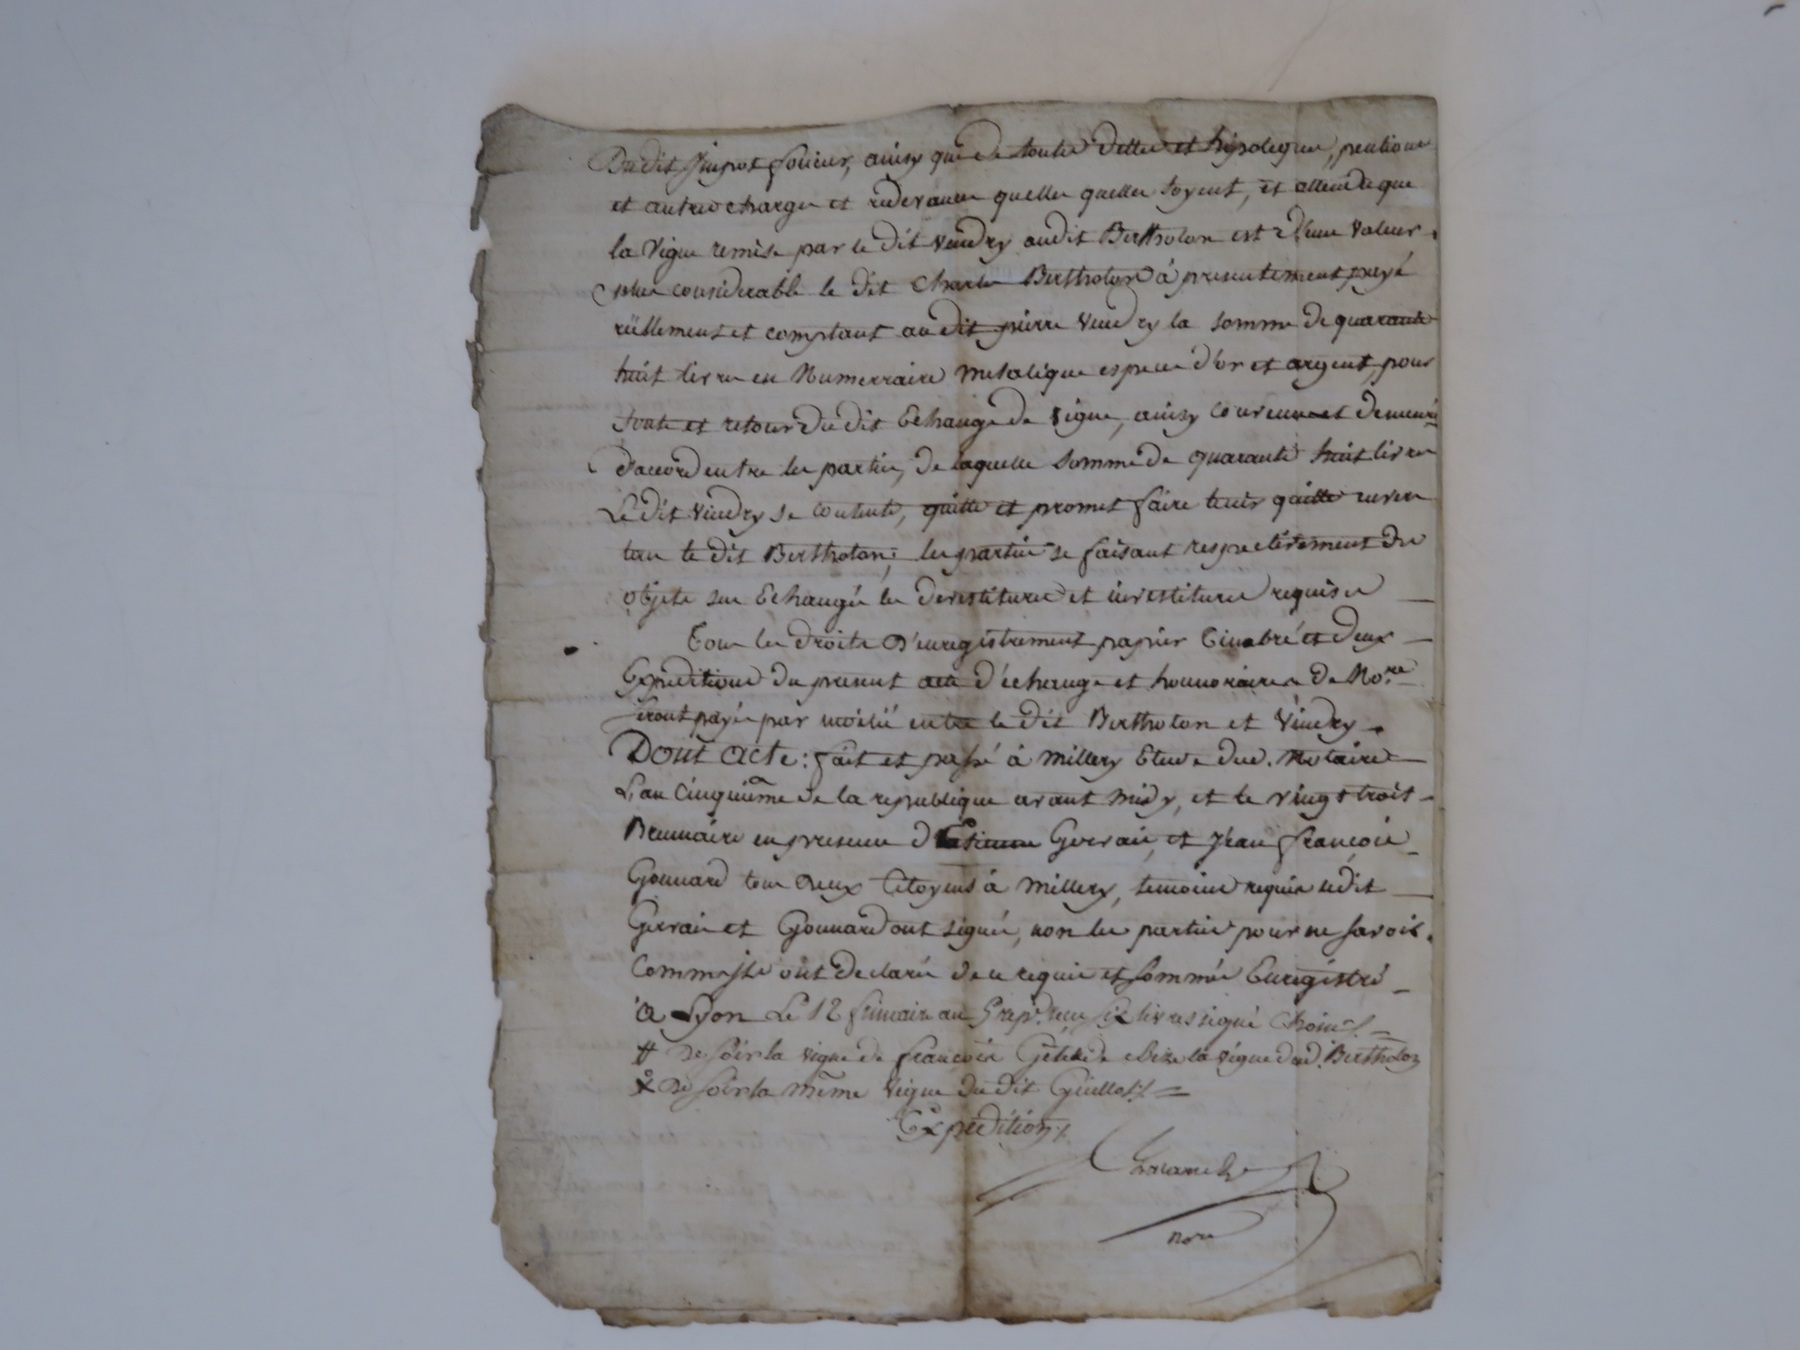 Dudit Impot foncier, ainsy que de toutte dettes et hipoteques, pentions
et autres charges et redevances quelles quelles soyent, et attendu que
la Vigne remise par le dit Vindry audit Bertholon est d'une valeur
plus considerable le dit Charles Bertholon à presentement payé
réellement et comptant audit pierre Vindry la somme de quarante
huit livres en Numerraire metalique espece d'or et argent, pour
soute et retour du dit Echange de Vigne, ainsy convenu et demeuré
d'accord entre les parties, de laquelle somme de quarante huit livres
Le dit Vindry se contente, quitte et promet faire tenir quitte envers
tous le dit Bertholon; les parties se faisant respectivement des
objets sus Echangés les devestitures et investitures requises
Tous les droits d'enregistrement papier timbré et deux
Expeditions du present acte d'échange et honnoraires de No.re
seront payés par moitié entre le dit Bertholon et Vindry.
Dont acte: fait et passé à Millery Etude dud. Notaire
L'an Cinquième de la republique avant midy, et le vingt trois
Brumaire en presence d'Etienne Gervais, et Jean François
Gonnard tous deux Citoyens à Millery, temoins requis ledit
Gervais et Gonnard ont signés, non les parties pour ne savoir
Comme ils ont declarés de ce requis et sommés Enregistré
à Lyon Le 12 frimaire an 5 rep. Reçu six livres signé
De soir la vigne de François de bize la vigne dud. Bertholon
De soir la même Vigne du dit Guillot
Expédition
nore